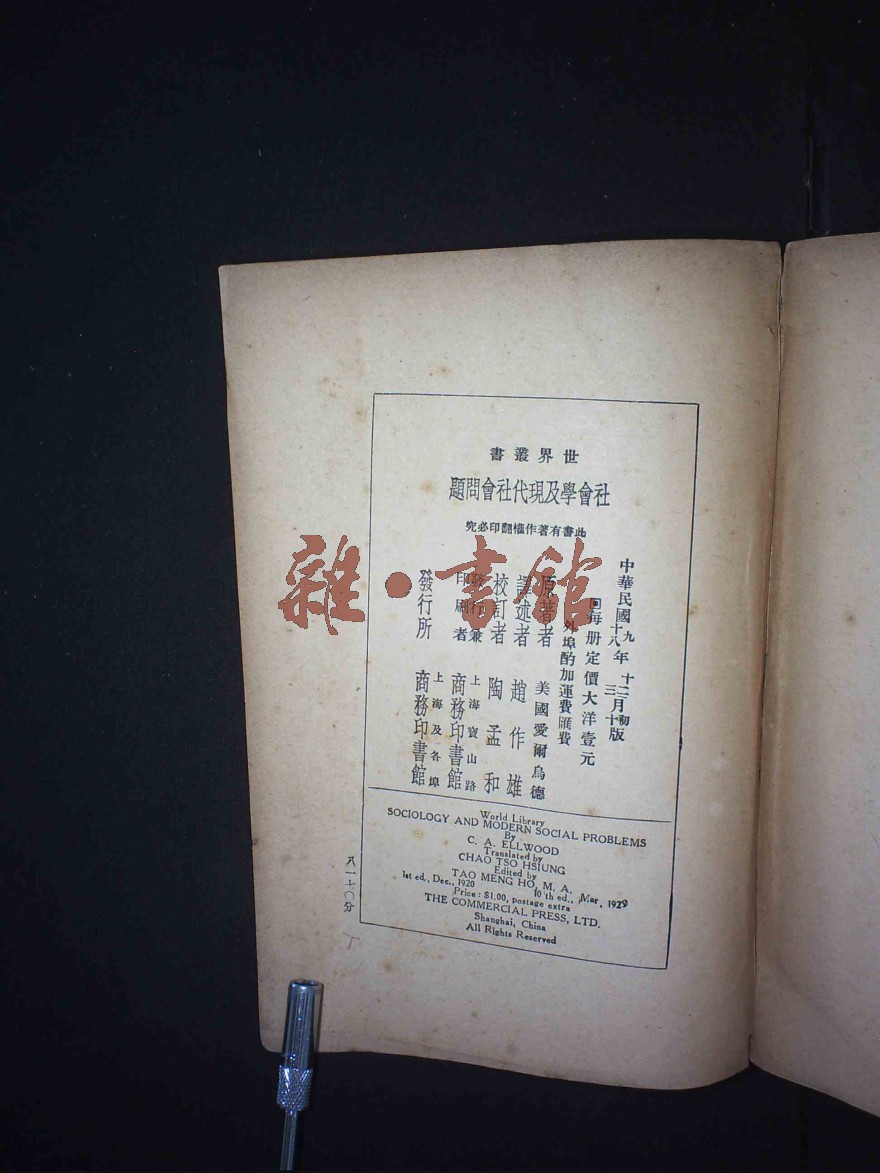 世界叢書
社會學及現代社會問題
此書有著作權翻印必究
中華民國九年十二月初版
十八年三月十版
回每册定價大洋壹元
外埠酌加運費匯費
原著者 美國愛爾烏德
譯述者 趙作雄
校訂者 陶孟和
發行兼印刷者 上海寶山路 商務印書館
發行所 上海及各埠 商務印書館
World Library
SOCIOLOGY AND MODERN SOCIAL PROBLEMS
By
C. A. ELLWOOD
Translated by
CHAO TSO HSIUNG
Edited by
TAO MENG HO, M. A.
1st ed., Dec., 1920 10'th ed., Mar., 1929
Price: $1.00, postage extra
THE COMMERCIAL PRESS, LTD.
Shanghai, China
All Rights Reserved
八一七〇分
雜·書館